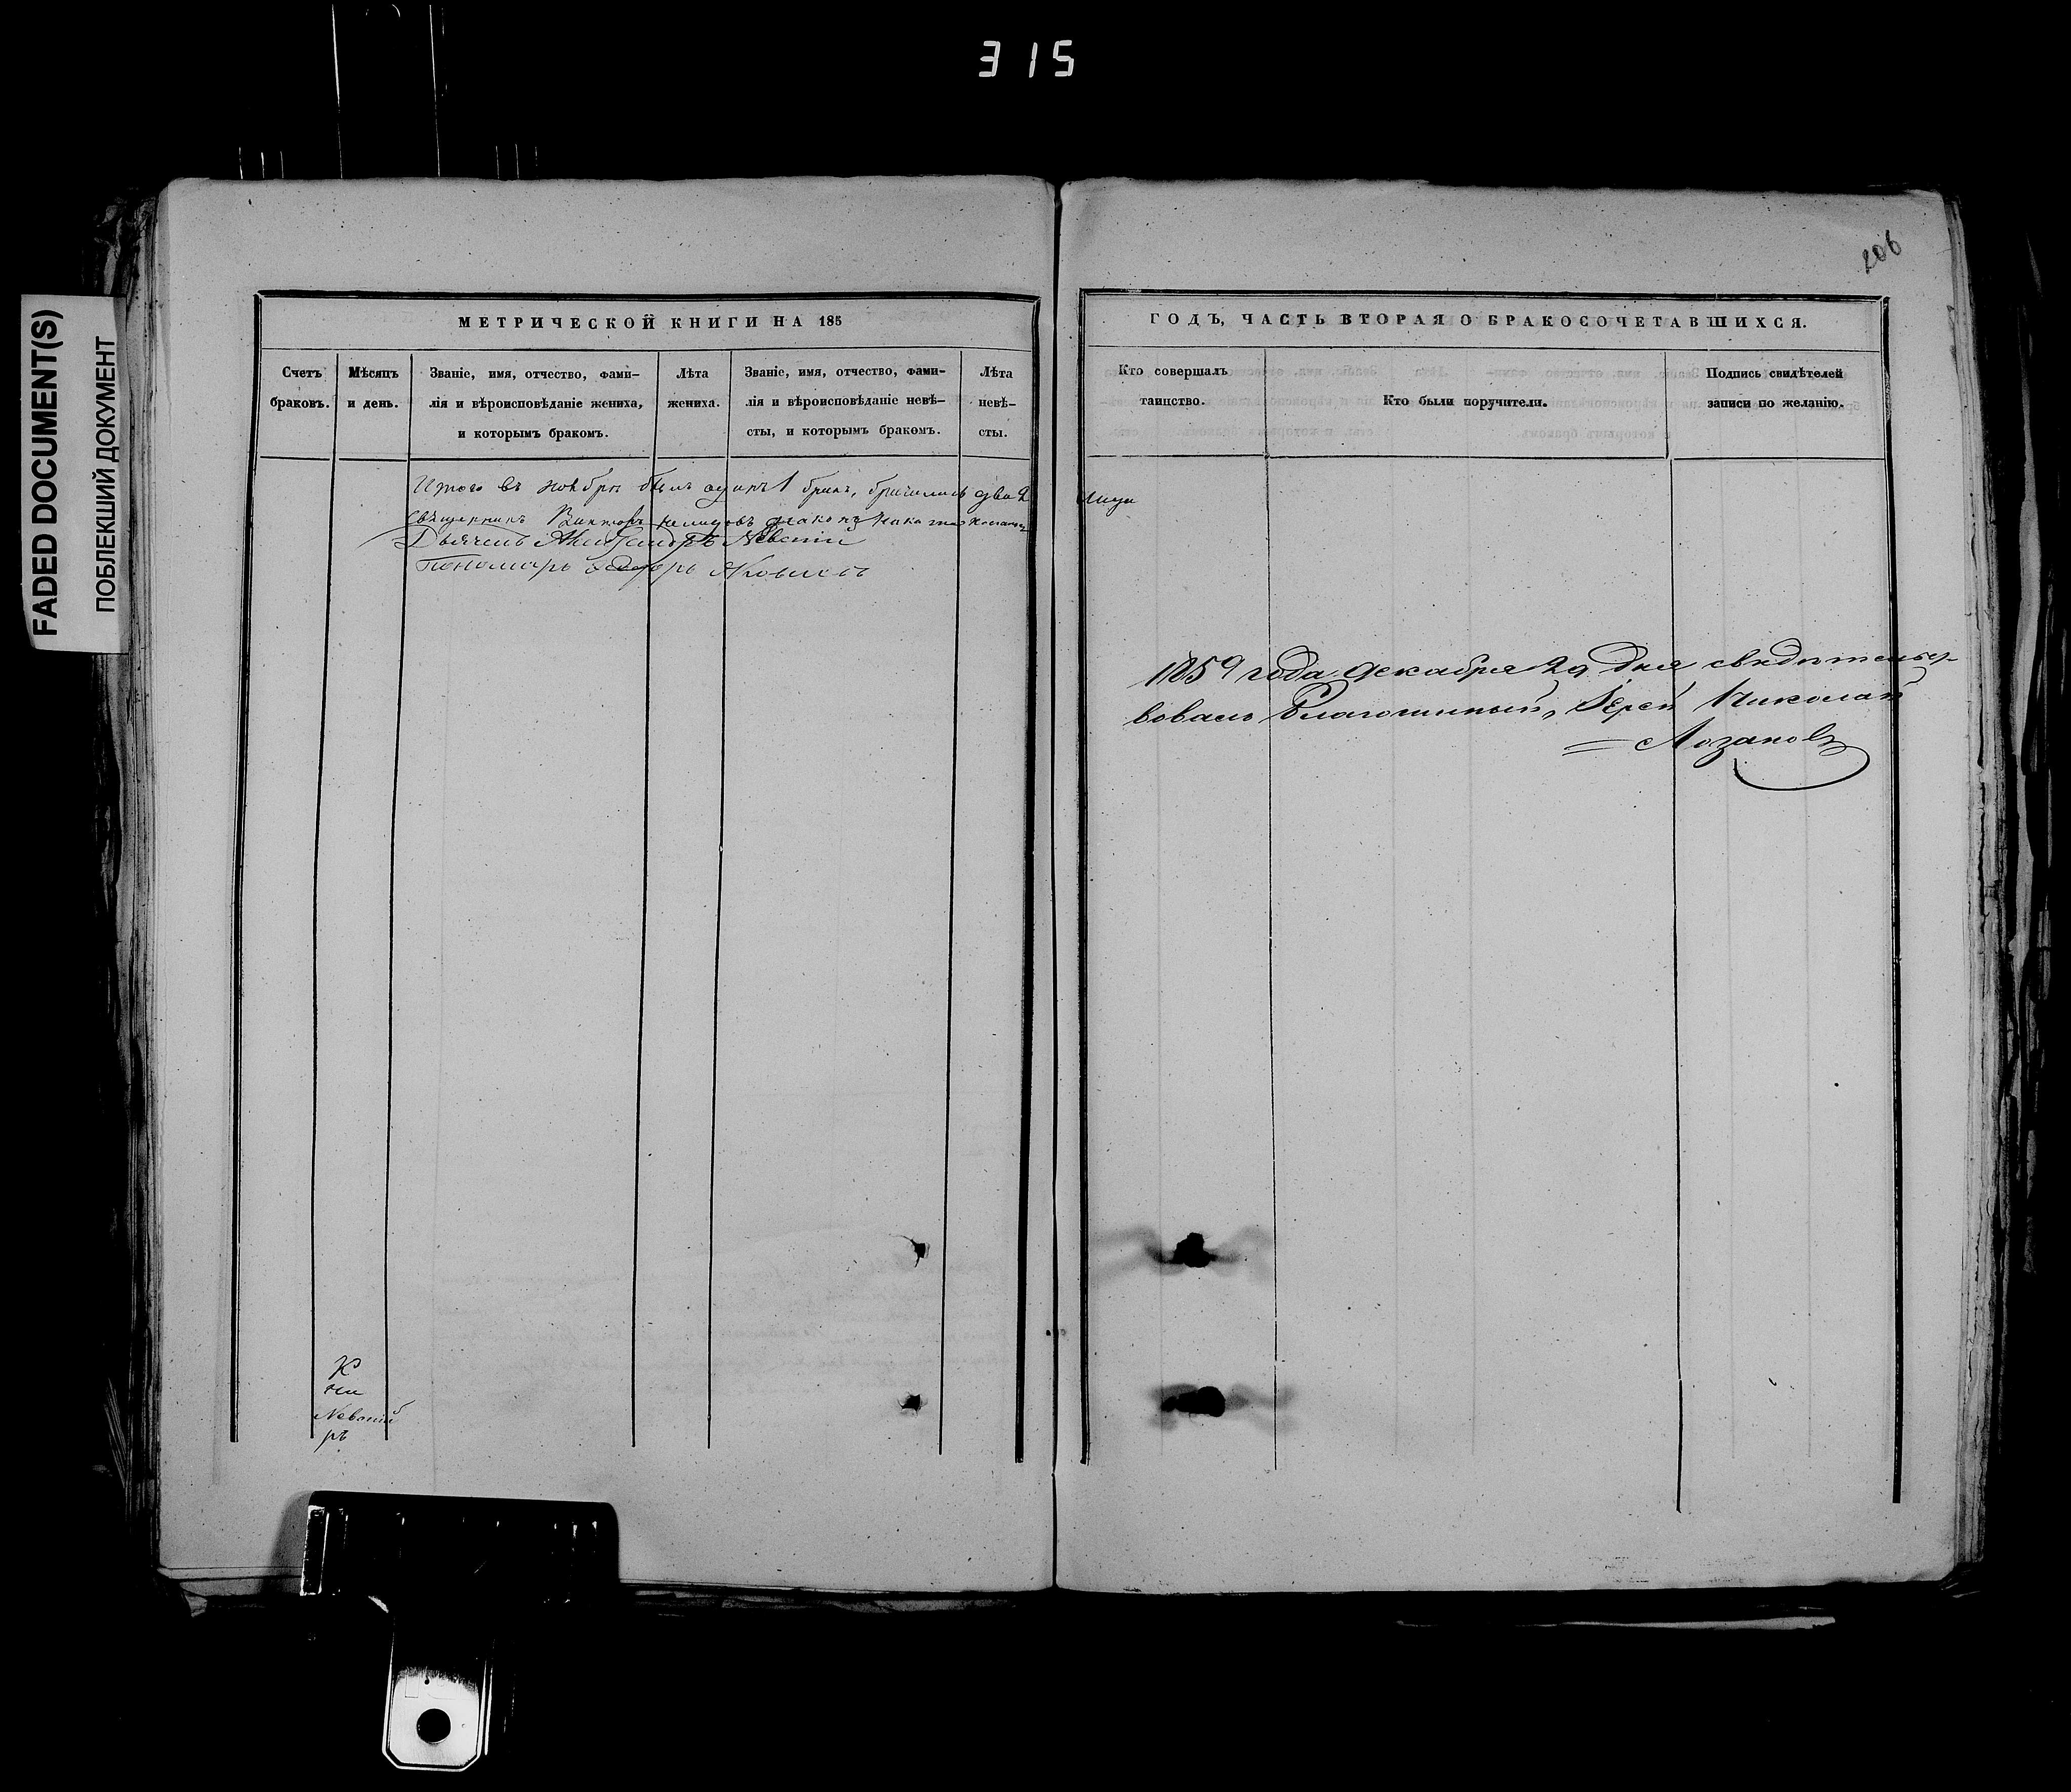 315
206
FADED DOCUMENT(S)
ПОБЛЕКШИЙ ДОКУМЕНТ
МЕТРИЧЕСКОЙ КНИГИ НА 185
Счетъ браковъ.
Мѣсяцъ и день.
Званіе, имя, отчество, фами-
лія и вѣроисповѣданіе жениха,
и которымъ бракомъ.
Лѣта жениха.
Званіе, имя, отчество, фами-
лія и вѣроисповѣданіе невѣ-
сты, и которымъ бракомъ.
Лѣта невѣ-
сты.
Итого въ ноябрѣ былъ одинъ 1 бракъ, два 2
Священникъ Викторъ діаконъ
Дьячекъ Александръ Невскій
Пономарь Ѳедоръ
К
Невскій
ръ
ГОДЪ, ЧАСТЬ ВТОРАЯ О БРАКОСОЧЕТАВШИХСЯ.
Кто совершалъ
таинство.
Кто были поручители.
Подпись свидѣтелей
записи по желанію.
лица
1859 года декабря 29 дня свидѣтельст-
вовалъ Благочинный, Іерей Николай
Лозановъ